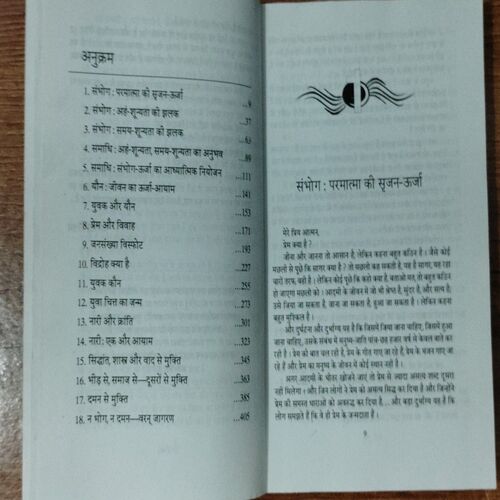 अनुक्रम
1. संभोग : परमात्मा की सृजन-ऊर्जा ...9
2. संभोग : अहं-शून्यता की झलक ...37
3. संभोग : समय-शून्यता की झलक ...63
4. समाधि : अहं-शून्यता, समय-शून्यता का अनुभव ...89
5. समाधि : संभोग-ऊर्जा का आध्यात्मिक नियोजन ...111
6. यौन : जीवन का ऊर्जा-आयाम ...141
7. युवक और यौन ...153
8. प्रेम और विवाह ...171
9. जनसंख्या विस्फोट ...193
10. विद्रोह क्या है ...227
11. युवक कौन ...255
12. युवा चित्त का जन्म ...273
13. नारी और क्रांति ...301
14. नारी : एक और आयाम ...323
15. सिद्धांत, शास्त्र और वाद से मुक्ति ...345
16. भीड़ से, समाज से—दूसरों से मुक्ति ...363
17. दमन से मुक्ति ...385
18. न भोग, न दमन—वरन् जागरण ...405
1
संभोग : परमात्मा की सृजन-ऊर्जा
मेरे प्रिय आत्मन्,
प्रेम क्या है ?
जीना और जानना तो आसान है, लेकिन कहना बहुत कठिन है । जैसे कोई
मछली से पूछे कि सागर क्या है ? तो मछली कह सकती है, यह है सागर, यह रहा
चारों तरफ, वही है । लेकिन कोई पूछे कि कहो क्या है, बताओ मत, तो बहुत कठिन
हो जाएगा मछली को । आदमी के जीवन में जो भी श्रेष्ठ है, सुंदर है, और सत्य है;
उसे जिया जा सकता है, जाना जा सकता है, हुआ जा सकता है । लेकिन कहना
बहुत मुश्किल है ।
और दुर्घटना और दुर्भाग्य यह है कि जिसमें जिया जाना चाहिए, जिसमें हुआ
जाना चाहिए, उसके संबंध में मनुष्य-जाति पांच-छह हजार वर्ष से केवल बातें कर
रही है । प्रेम की बात चल रही है, प्रेम के गीत गाए जा रहे हैं, प्रेम के भजन गाए जा
रहे हैं और प्रेम का मनुष्य के जीवन में कोई स्थान नहीं है ।
अगर आदमी के भीतर खोजने जाएं तो प्रेम से ज्यादा असत्य शब्द दूसरा
नहीं मिलेगा । और जिन लोगों ने प्रेम को असत्य सिद्ध कर दिया है और जिन्होंने
प्रेम की समस्त धाराओं को अवरुद्ध कर दिया है,... और बड़ा दुर्भाग्य यह है कि
लोग समझते हैं कि वे ही प्रेम के जन्मदाता हैं ।
9